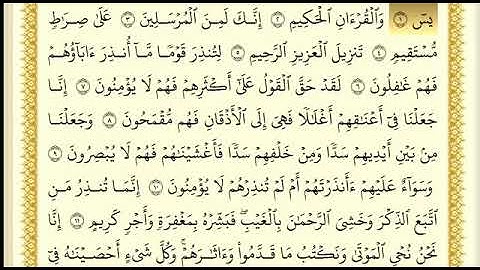 يسٓ ۝١ وَٱلْقُرْءَانِ ٱلْحَكِيمِ ۝٢ إِنَّكَ لَمِنَ ٱلْمُرْسَلِينَ ۝٣ عَلَىٰ صِرَٰطٍ
مُّسْتَقِيمٍ ۝٤ تَنزِيلَ ٱلْعَزِيزِ ٱلرَّحِيمِ ۝٥ لِتُنذِرَ قَوْمًا مَّآ أُنذِرَ ءَابَآؤُهُمْ
فَهُمْ غَٰفِلُونَ ۝٦ لَقَدْ حَقَّ ٱلْقَوْلُ عَلَىٰٓ أَكْثَرِهِمْ فَهُمْ لَا يُؤْمِنُونَ ۝٧ إِنَّا
جَعَلْنَا فِىٓ أَعْنَٰقِهِمْ أَغْلَٰلًا فَهِىَ إِلَى ٱلْأَذْقَانِ فَهُم مُّقْمَحُونَ ۝٨ وَجَعَلْنَا
مِنۢ بَيْنِ أَيْدِيهِمْ سَدًّا وَمِنْ خَلْفِهِمْ سَدًّا فَأَغْشَيْنَٰهُمْ فَهُمْ لَا يُبْصِرُونَ ۝٩
وَسَوَآءٌ عَلَيْهِمْ ءَأَنذَرْتَهُمْ أَمْ لَمْ تُنذِرْهُمْ لَا يُؤْمِنُونَ ۝١٠ إِنَّمَا تُنذِرُ مَنِ
ٱتَّبَعَ ٱلذِّكْرَ وَخَشِىَ ٱلرَّحْمَٰنَ بِٱلْغَيْبِ ۖ فَبَشِّرْهُ بِمَغْفِرَةٍ وَأَجْرٍ كَرِيمٍ ۝١١ إِنَّا
نَحْنُ نُحْىِ ٱلْمَوْتَىٰ وَنَكْتُبُ مَا قَدَّمُوا۟ وَءَاثَٰرَهُمْ ۚ وَكُلَّ شَىْءٍ أَحْصَيْنَٰهُ فِىٓ